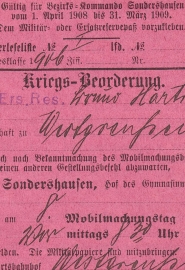 Gültig für Bezirks-Kommando Sondershausen
vom 1. April 1908 bis 31. März 1909.
dem Militär- oder Ersatzreservepaß vorzukleben
erlesteliste No. I lfd. No.
esklasse 1906 Ziff. Nr.
Kriegs-Beorderung.
Ers. Res.
haft zu
ch nach Bekanntmachung des Mobilmachungsb
einen anderen Gestellungsbefehl abzuwarten,
Sondershausen, Hof des Gymnasium
am 8 Mobilmachungstag
mittags 8 30 Uhr
lden. Die Militärpapiere sind mitzubringen